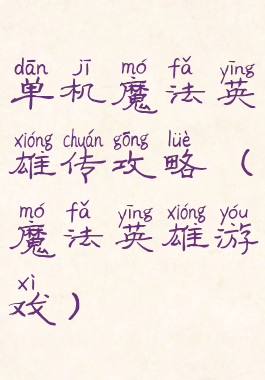 dān jī mó fǎ yīng
单机魔法英
xióng chuán gōng lüè
雄传攻略（
mó fǎ yīng xióng yóu
魔法英雄游
xì
戏）